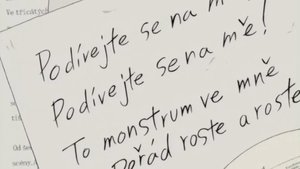 Ve třicátých
Podívejte se na m
Podívejte se na mě!
To monstrum ve mně
Pořád roste a roste
Od
scény